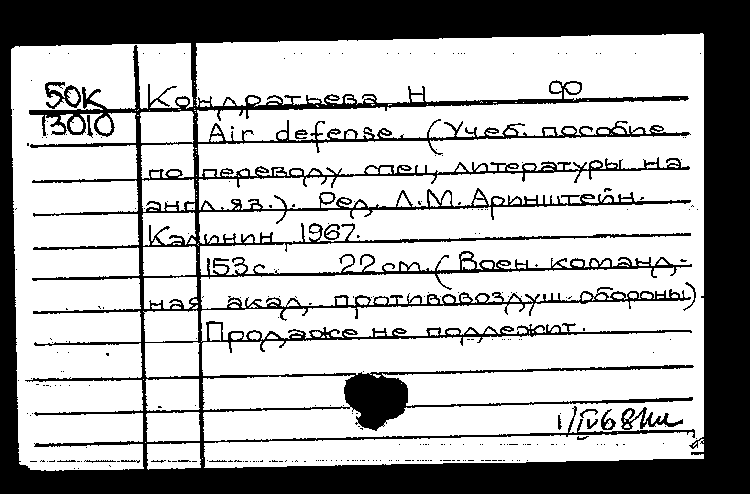 50К Кондратьева, Н фо
13010 Air defense. (Учеб. пособие
по переводу спец, литературы на
англ.яз.). Ред. Л.М. Аринштейн.
Калинин, 1967.
153с. 22 cm. (Воен. команд,-
ная акад. противовоздуш. обороны).
Продаже не подлежит.
1/IV68